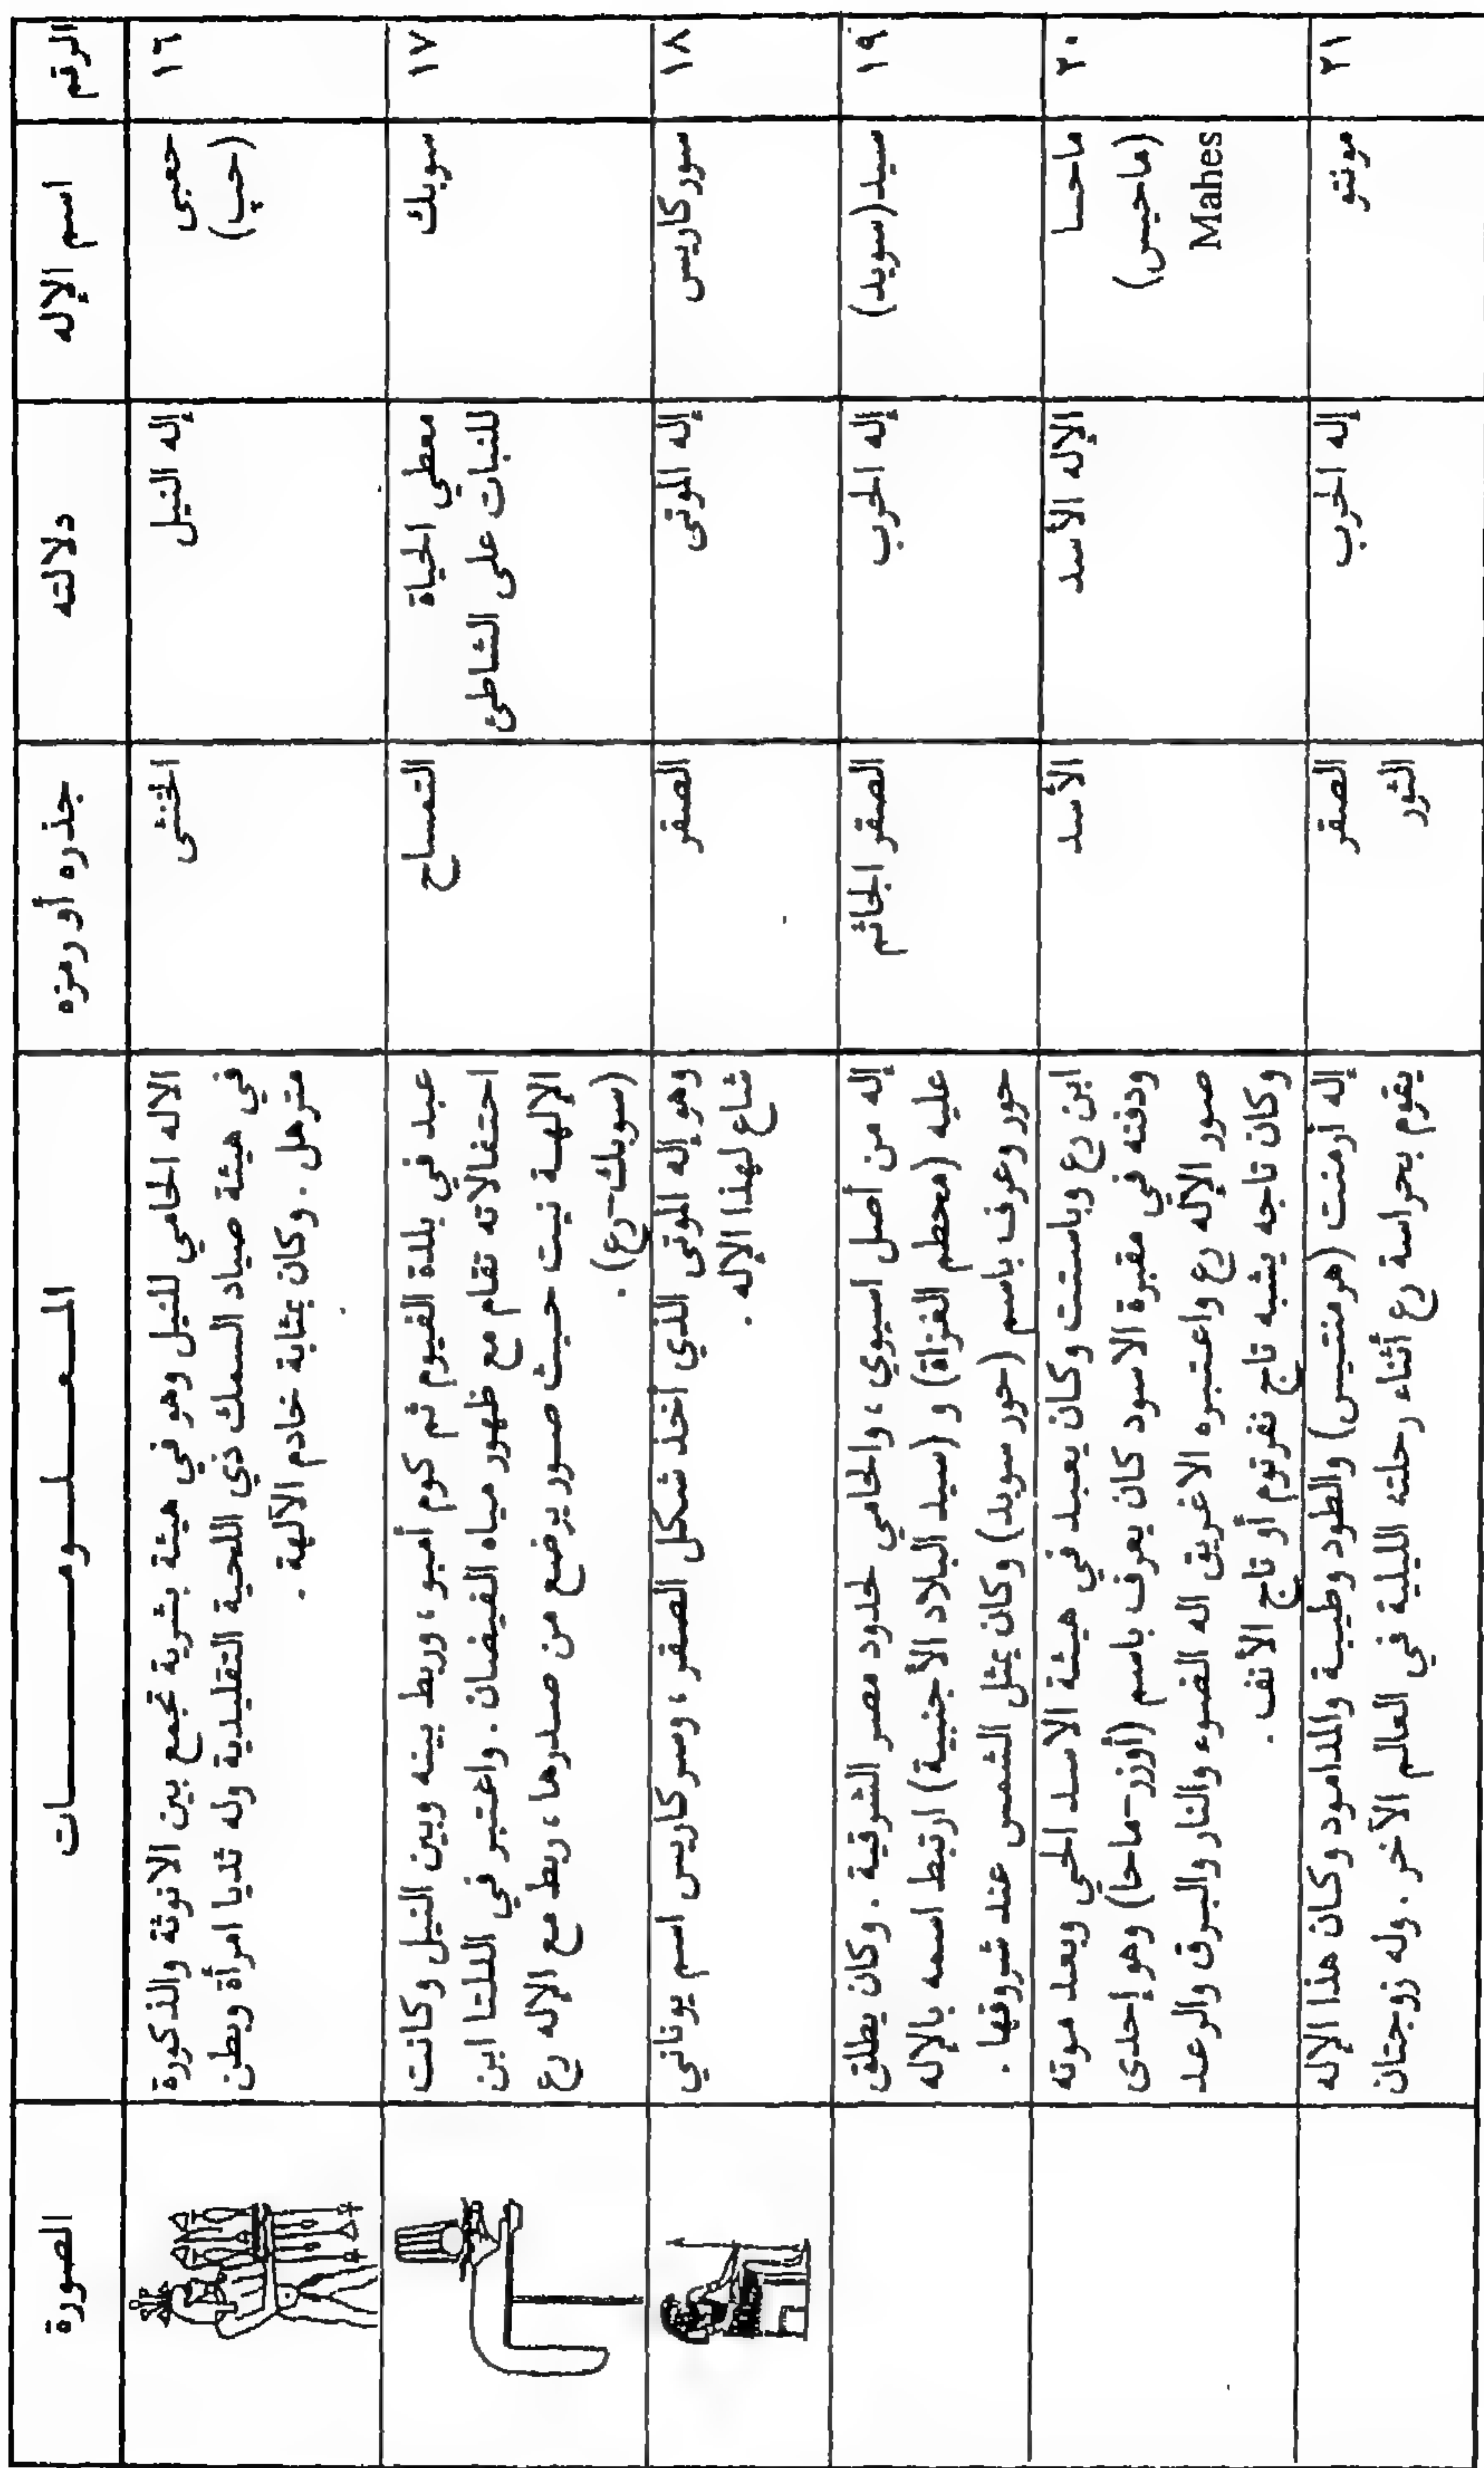 الرقم
اسم الإله
دلالته
جذره أو رمزه
المعلومات
الصورة
١٦
حعبي
(حپ)
إله النيل
الخنثى
الاله الحامي للنيل وهو في هيئة بشرية تجمع بين الانوثة والذكورة
في هيئة صياد السمك ذي اللحية التقليدية وله ثديا امرأة وبطن
مترهل . وكان بمثابة خادم الآلهة .
١٧
سوبك
معطي الحياة
للنبات على الشاطئ
التمساح
عبد في بلدة الفيوم ثم كوم أمبو ، وربط بينه وبين النيل وكانت
احتفالاته تقام مع ظهور مياه الفيضان . واعتبر في الدلتا ابن
الإلهة نيت حيث صور يرضع من صدرها ، ربط مع الإله رع
(سوبك-رع) .
١٨
سوركاريس
إله الموتى
الصقر
وهو إله الموتى الذي أخذ شكل الصقر ، وسركاريس اسم يوناني
شاع لهذا الإله .
١٩
سيد (سويد)
إله الحرب
الصقر الجاثم
إله من أصل اسيوي ، والحامي لحدود مصر الشرقية . وكان يطلق
عليه (محطم الغزاة) و (سيد البلاد الأجنبية) ارتبط اسمه بالإله
حور وعرف باسم (حور سويد) وكان يمثل الشمس عند شروقها .
٢٠
ماحسا
(ماحيس)
Mahes
الإله الأسد
الأسد
ابن رع وباستت وكان يعبد في هيئة الاسد الحي وبعد موته
ودفنه في مقبرة الاسود كان يعرف باسم (أوزر-ماحا) وهو إحدى
صور الإله رع واعتبره الاغريق اله الضوء والنار والبرق والرعد
وكان تاجه يشبه تاج نفرتوم أو تاج الأنف .
٢١
مونتو
إله الحرب
الصقر
الثور
إله أرمنت (هرمنتيس) والطود وطيبة والمدامود وكان هذا الإله
يقوم بحراسة رع أثناء رحلته الليلية في العالم الآخر . وله زوجتان